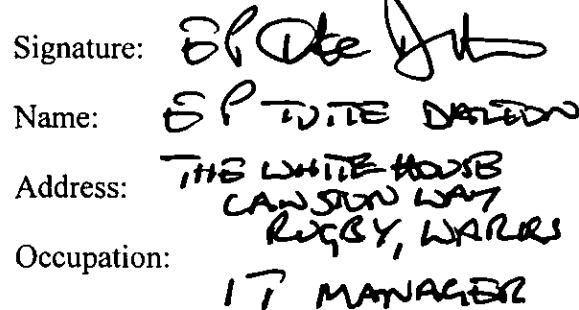 Signature: E P
Name: E P TUITE DALTON
Address: THE WHITE HOUSE
CAWSTON WAY
RUGBY, WARKS
Occupation:
IT MANAGER